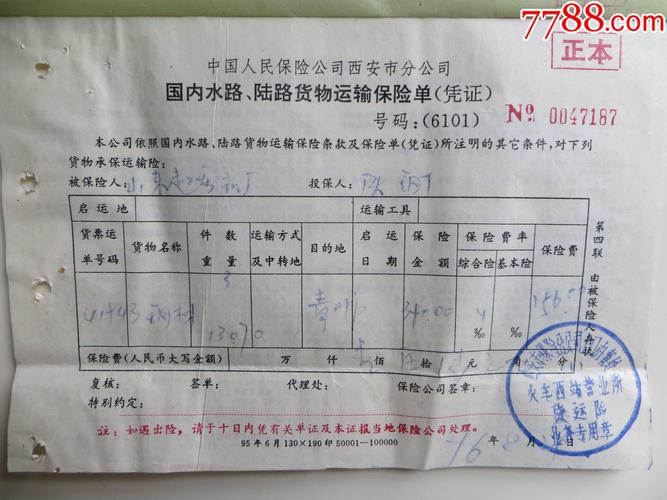 7788.com
正本
中国人民保险公司西安市分公司
国内水路、陆路货物运输保险单(凭证)
号码:(6101) № 0047187
本公司依照国内水路、陆路货物运输保险条款及保险单(凭证)所注明的其它条件,对下列
货物承保运输险:
被保险人: 投保人:
启运地 运输工具
货票运单号码 货物名称 件数重量 运输方式及中转地 目的地 启运日期 保险金额 保险费率 综合险 基本险 保险费
3
钢材 13070 4 ‰ ‰
保险费(人民币大写金额) 万 仟 佰 拾 元 角 分
复核: 签单: 代理处: 保险公司签章:
特别约定:
注:如遇出险,请于十日内凭有关单证及本证报当地保险公司处理。
95年6月130×190印50001—100000
年 月 日
第四联 由被保险人存执
火车西站营业所
货运险
业务专用章